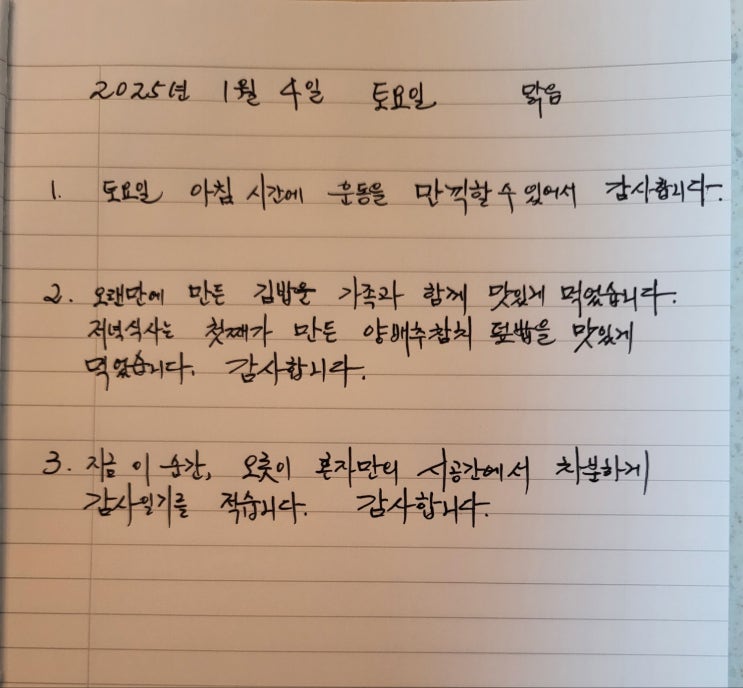 2025년 1월 4일 토요일 맑음
1. 토요일 아침 시간에 운동을 만끽할 수 있어서 감사합니다.
2. 오랜만에 만든 김밥을 가족과 함께 맛있게 먹었습니다.
저녁식사는 첫째가 만든 양배추참치 덮밥을 맛있게
먹었습니다. 감사합니다.
3. 지금 이 순간, 오롯이 혼자만의 시공간에서 차분하게
감사일기를 적습니다. 감사합니다.